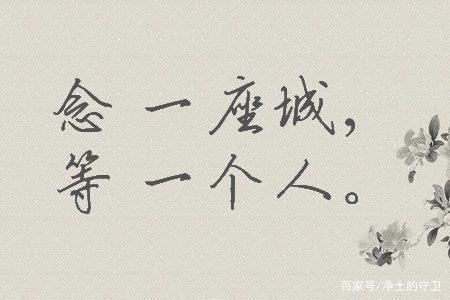 念一座城，
等一个人。
百家号/净土的守卫